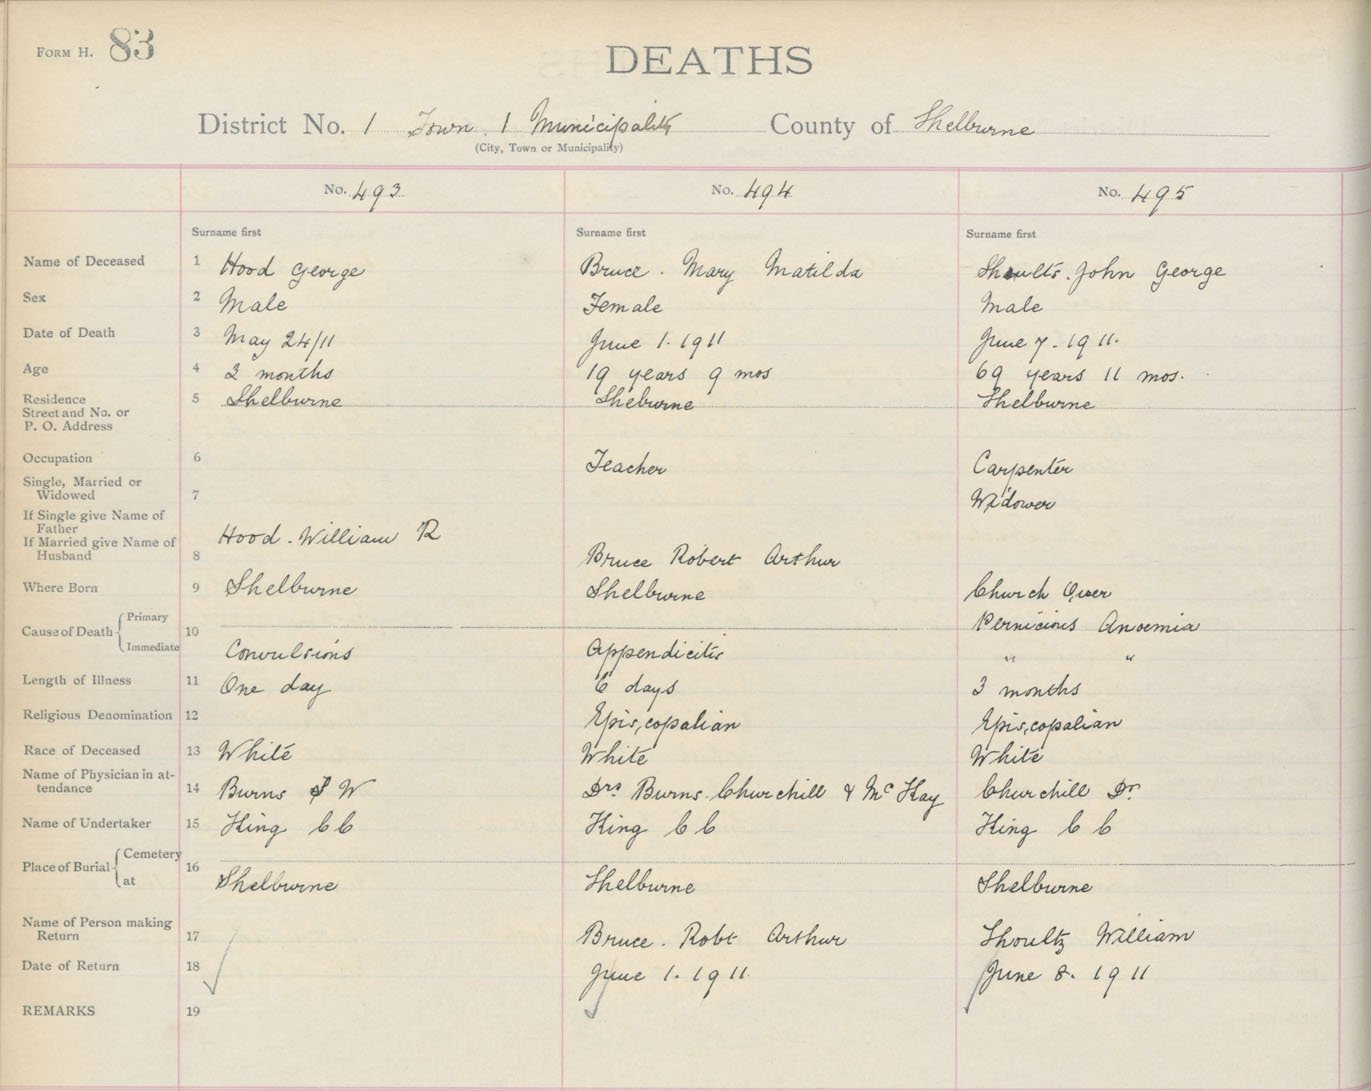 FORM H. 83
DEATHS
District No. 1 Town 1 Municipality County of Shelburne
(City, Town or Municipality)
No. 493 No. 494 No. 495
Surname first Surname first Surname first
Name of Deceased 1 Hood George Bruce. Mary Matilda Shoults. John George
Sex 2 Male Female Male
Date of Death 3 May 24/11 June 1. 1911 June 7. 1911.
Age 4 2 months 19 years 9 mos 69 years 11 mos.
Residence 5 Shelburne Sheburne Shelburne
Street and No. or
P. O. Address
Occupation 6 Teacher Carpenter
Single, Married or
Widowed 7 Widower
If Single give Name of
Father Hood. William R
If Married give Name of
Husband 8 Bruce Robert Arthur
Where Born 9 Shelburne Shelburne Church Over
Cause of Death Primary 10 Pernicious Anoemia
Immediate Convulsions Appendicitis " "
Length of Illness 11 One day 6 days 3 months
Religious Denomination 12 Episcopalian Episcopalian
Race of Deceased 13 White White White
Name of Physician in at-
tendance 14 Burns W Drs Burns. Churchill & McKay Churchill Dr.
Name of Undertaker 15 King C C King C C King C C
Place of Burial Cemetery 16
at Shelburne Shelburne Shelburne
Name of Person making
Return 17 Bruce. Robt Arthur Shoultz William
Date of Return 18 June 1. 1911. June 8. 1911
REMARKS 19